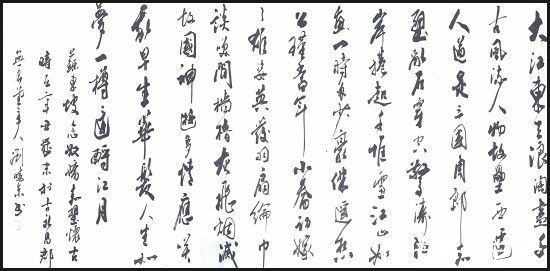 大江東去浪淘盡千
古風流人物故壘西邊
人道是三國周郎赤
壁亂石穿空驚濤裂
岸捲起千堆雪江山如
畫一時多少豪傑遙想
公瑾當年小喬初嫁
了雄姿英發羽扇綸巾
談笑間檣櫓灰飛烟滅
故國神遊多情應笑
我早生華髮人生如
夢一樽還酹江月
蘇東坡念奴嬌赤壁懷古
時在 歲末於古永昌郡
主人劉 書